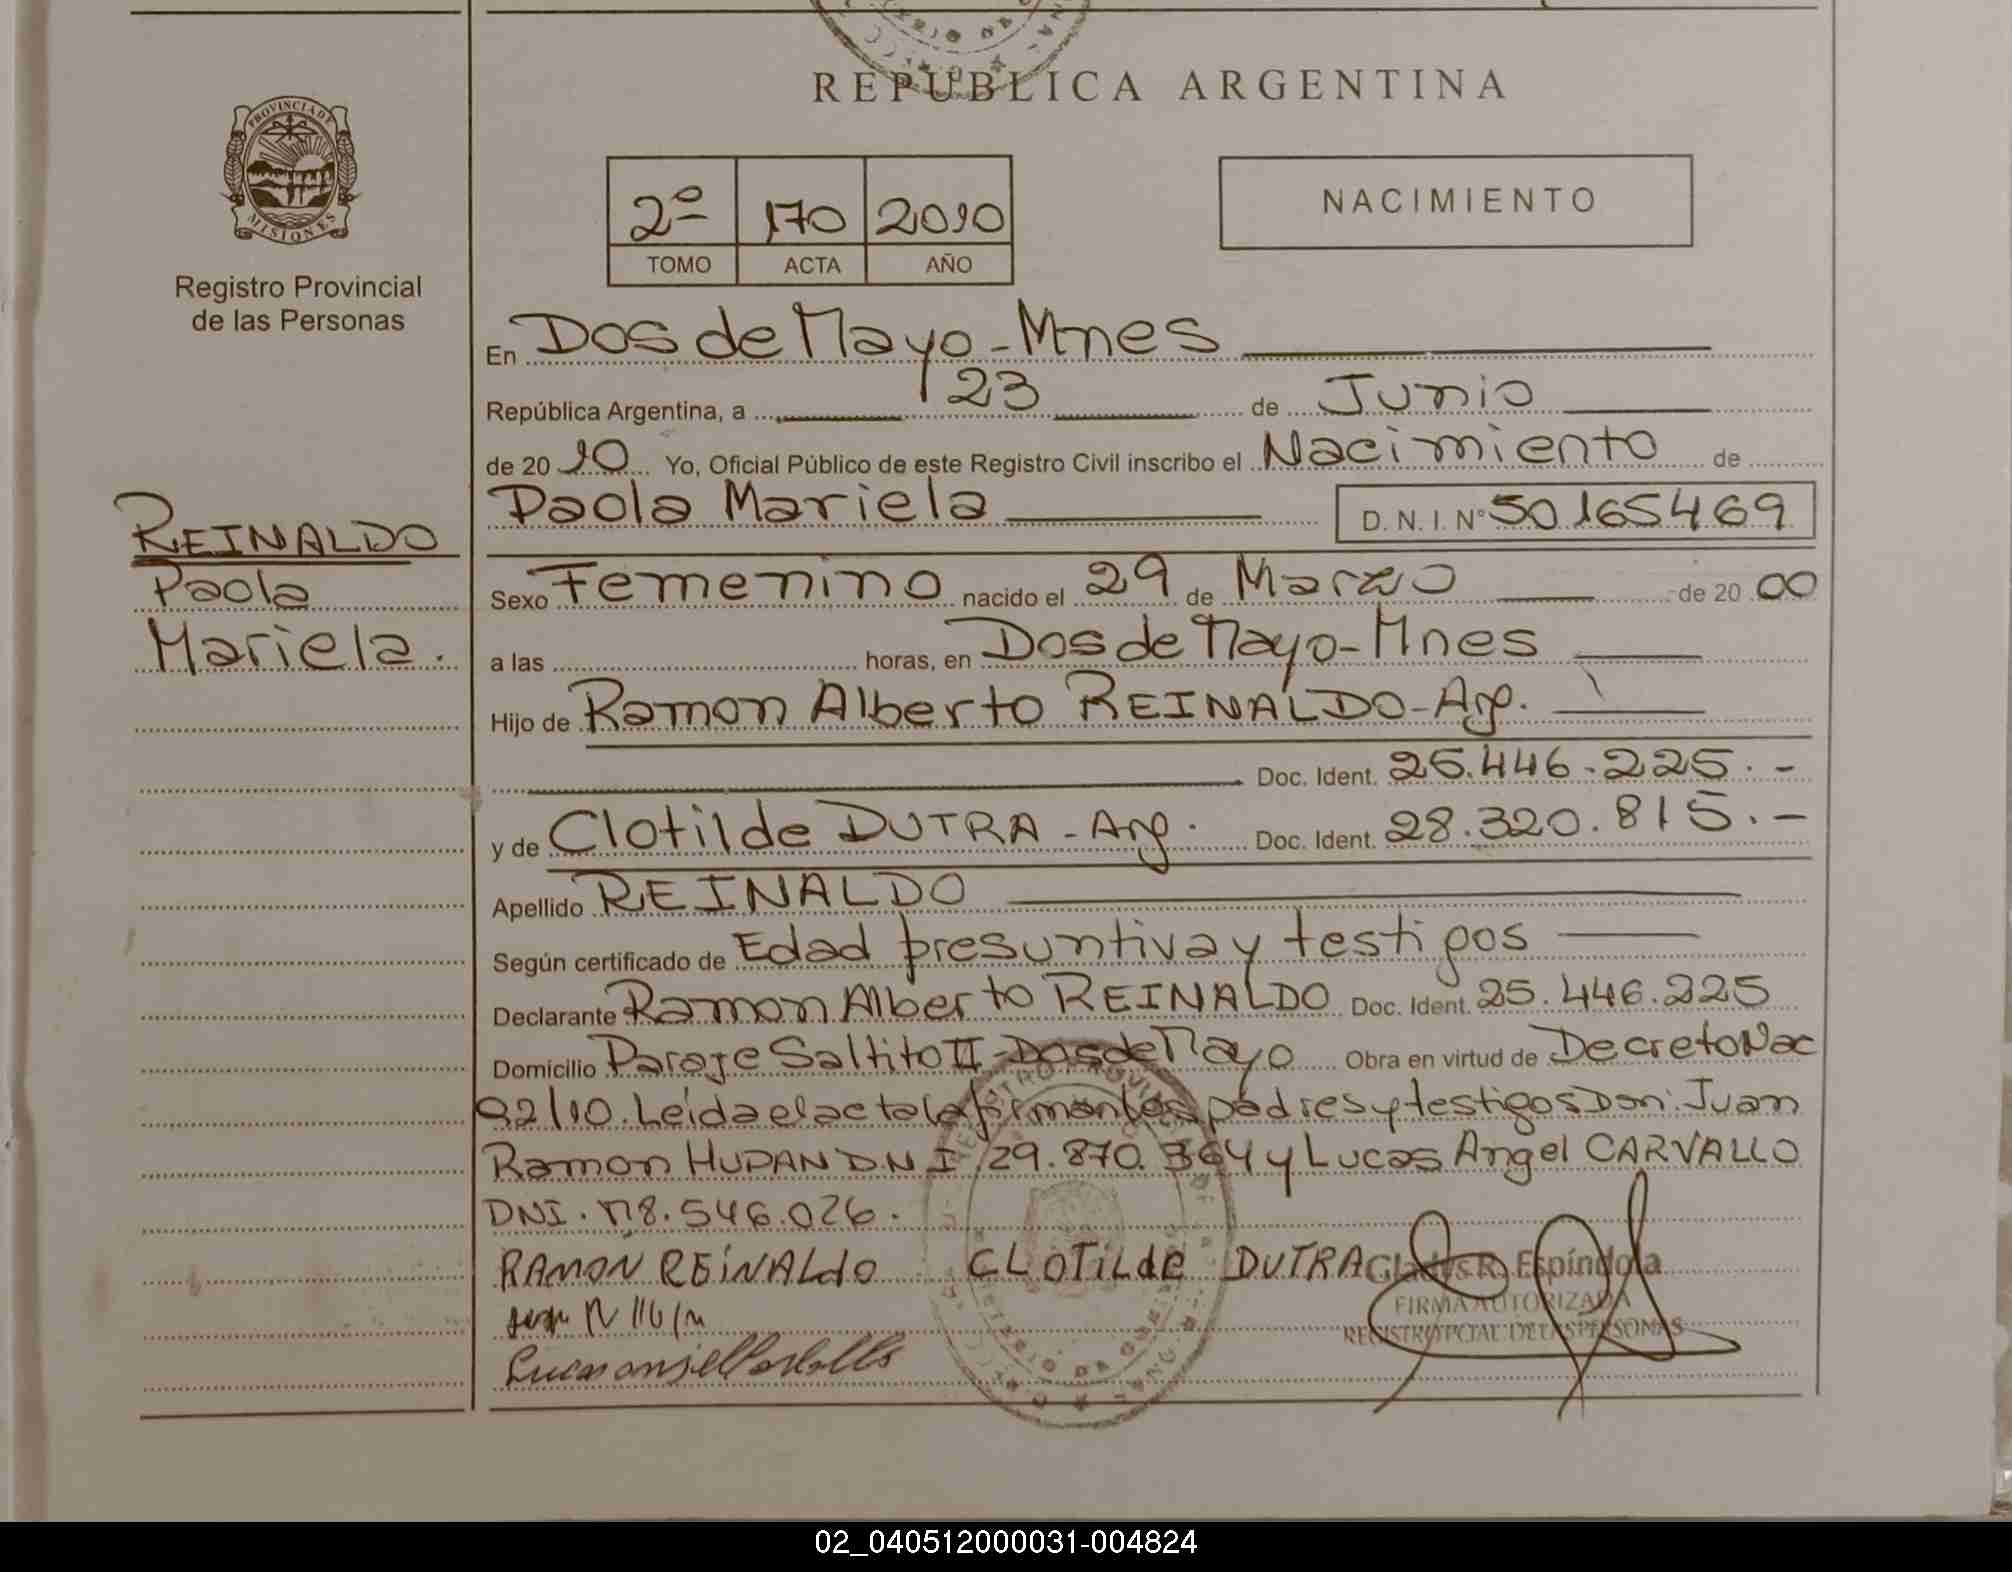 REPUBLICA ARGENTINA
PROVINCIA DE
MISIONES
Registro Provincial
de las Personas
2º 170 2010
TOMO ACTA AÑO
NACIMIENTO
En Dos de Mayo - Mnes
República Argentina, a 23 de Junio
de 2010 Yo, Oficial Público de este Registro Civil inscribo el Nacimiento de
Paola Mariela D. N. I. Nº 50165469
REINALDO
Paola
Mariela.
Sexo Femenino nacido el 29 de Marzo de 2000
a las horas, en Dos de Mayo - Mnes
Hijo de Ramon Alberto REINALDO - Arg.
Doc. Ident. 25.446.225.-
y de Clotilde DUTRA - Arg. Doc. Ident. 28.320.815.-
Apellido REINALDO
Según certificado de Edad presuntiva y testigos
Declarante Ramon Alberto REINALDO Doc. Ident. 25.446.225
Domicilio Paraje Saltito II - Dos de Mayo Obra en virtud de Decreto Nac
92/10. Leida el acta la firman los padres y testigos Don: Juan
Ramon HUPAN D.N.I 29.870.364 y Lucas Angel CARVALLO
DNI. M8.546.026.
RAMON REINALdO CLOTILde DUTRA Gladys R. Espíndola
FIRMA AUTORIZADA
REGISTRO PCIAL. DE LAS PERSONAS
02_040512000031-004824